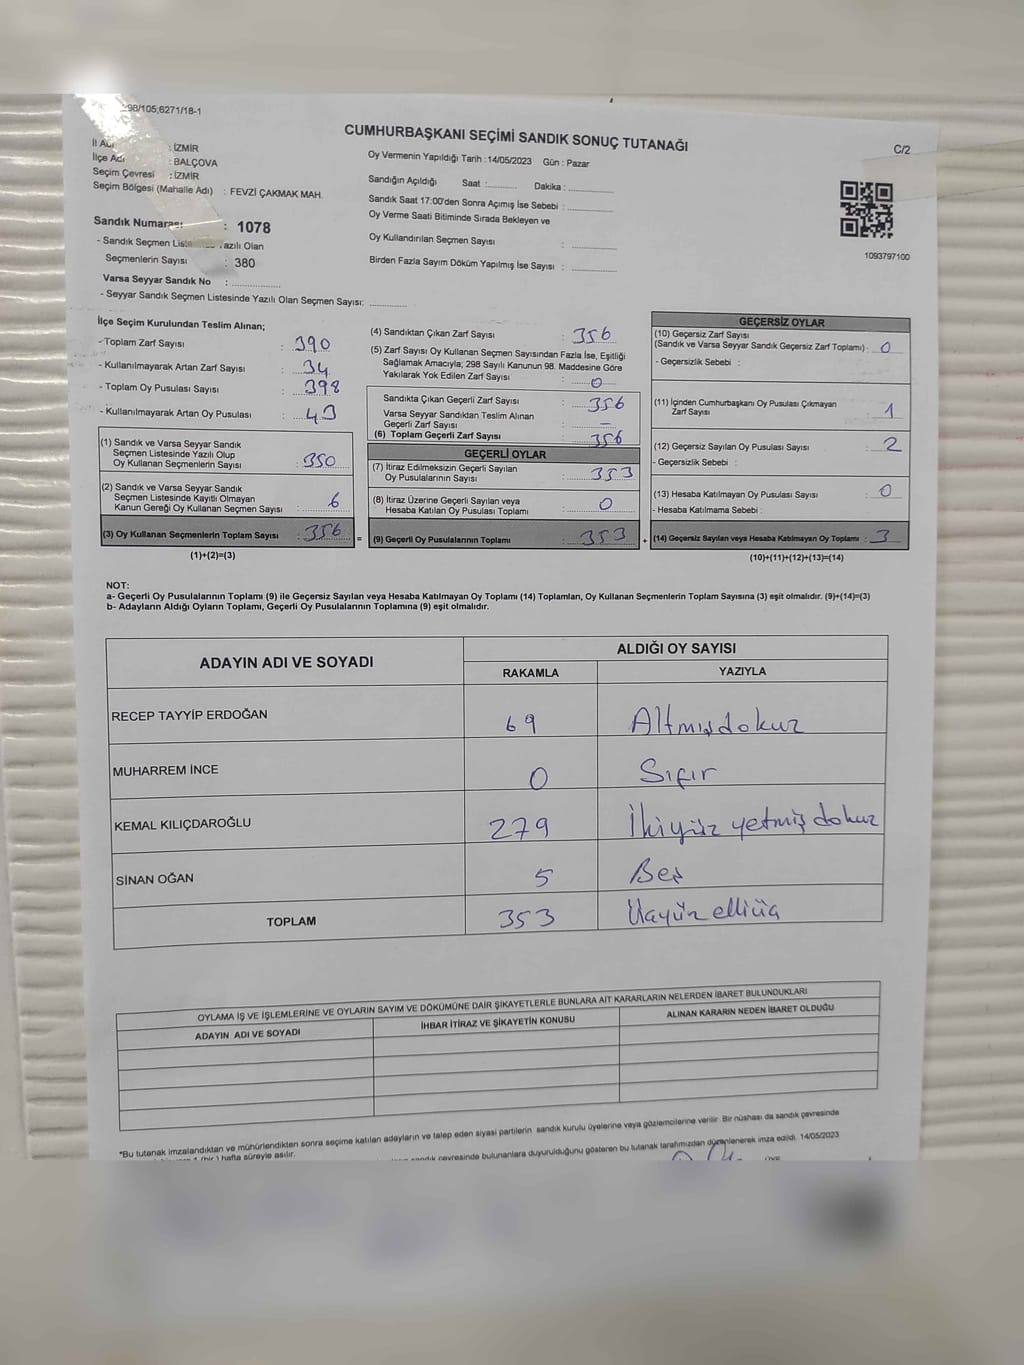 98/105,6271/18-1
CUMHURBAŞKANI SEÇİMİ SANDIK SONUÇ TUTANAĞI
C/2
İl A : İZMİR
İlçe Adı : BALÇOVA
Seçim Çevresi : İZMİR
Seçim Bölgesi (Mahalle Adı) : FEVZİ ÇAKMAK MAH.
Sandık Numaras : 1078
- Sandık Seçmen Liste azılı Olan
Seçmenlerin Sayısı : 380
Varsa Seyyar Sandık No : ..............
- Seyyar Sandık Seçmen Listesinde Yazılı Olan Seçmen Sayısı: ..........
Oy Vermenin Yapıldığı Tarih :14/05/2023 Gün : Pazar
Sandığın Açıldığı Saat :......... Dakika : .............
Sandık Saat 17:00'den Sonra Açımış İse Sebebi : .............
Oy Verme Saati Bitiminde Sırada Bekleyen ve
Oy Kullandırılan Seçmen Sayısı : .............
Birden Fazla Sayım Döküm Yapılmış İse Sayısı : .............
1093797100
İlçe Seçim Kurulundan Teslim Alınan;
- Toplam Zarf Sayısı : 390
- Kullanılmayarak Artan Zarf Sayısı : 34
- Toplam Oy Pusulası Sayısı : 398
- Kullanılmayarak Artan Oy Pusulası : 43
(1) Sandık ve Varsa Seyyar Sandık
Seçmen Listesinde Yazılı Olup
Oy Kullanan Seçmenlerin Sayısı : 350
(2) Sandık ve Varsa Seyyar Sandık
Seçmen Listesinde Kayıtlı Olmayan
Kanun Gereği Oy Kullanan Seçmen Sayısı : 6
(3) Oy Kullanan Seçmenlerin Toplam Sayısı : 356 =
(1)+(2)=(3)
(4) Sandıktan Çıkan Zarf Sayısı : 356
(5) Zarf Sayısı Oy Kullanan Seçmen Sayısından Fazla İse, Eşitliği
Sağlamak Amacıyla; 298 Sayılı Kanunun 98. Maddesine Göre
Yakılarak Yok Edilen Zarf Sayısı : 0
Sandıkta Çıkan Geçerli Zarf Sayısı : 356
Varsa Seyyar Sandıktan Teslim Alınan
Geçerli Zarf Sayısı : –
(6) Toplam Geçerli Zarf Sayısı 356
GEÇERLİ OYLAR
(7) İtiraz Edilmeksizin Geçerli Sayılan
Oy Pusulalarının Sayısı : 353
(8) İtiraz Üzerine Geçerli Sayılan veya
Hesaba Katılan Oy Pusulası Toplamı : 0
(9) Geçerli Oy Pusulalarının Toplamı : 353 +
GEÇERSİZ OYLAR
(10) Geçersiz Zarf Sayısı
(Sandık ve Varsa Seyyar Sandık Geçersiz Zarf Toplamı) : 0
- Geçersizlik Sebebi :
(11) İçinden Cumhurbaşkanı Oy Pusulası Çıkmayan
Zarf Sayısı : 1
(12) Geçersiz Sayılan Oy Pusulası Sayısı : 2
- Geçersizlik Sebebi :
(13) Hesaba Katılmayan Oy Pusulası Sayısı : 0
- Hesaba Katılmama Sebebi :
(14) Geçersiz Sayılan veya Hesaba Katılmayan Oy Toplamı : 3
(10)+(11)+(12)+(13)=(14)
NOT:
a- Geçerli Oy Pusulalarının Toplamı (9) ile Geçersiz Sayılan veya Hesaba Katılmayan Oy Toplamı (14) Toplamları, Oy Kullanan Seçmenlerin Toplam Sayısına (3) eşit olmalıdır. (9)+(14)=(3)
b- Adayların Aldığı Oyların Toplamı, Geçerli Oy Pusulalarının Toplamına (9) eşit olmalıdır.
ADAYIN ADI VE SOYADI
ALDIĞI OY SAYISI
RAKAMLA YAZIYLA
RECEP TAYYİP ERDOĞAN 69 Altmışdokuz
MUHARREM İNCE 0 Sıfır
KEMAL KILIÇDAROĞLU 279 İkiyüz yetmiş dokuz
SİNAN OĞAN 5 Beş
TOPLAM 353 Üçyüz elliüç
OYLAMA İŞ VE İŞLEMLERİNE VE OYLARIN SAYIM VE DÖKÜMÜNE DAİR ŞİKAYETLERLE BUNLARA AİT KARARLARIN NELERDEN İBARET BULUNDUKLARI
ADAYIN ADI VE SOYADI İHBAR İTİRAZ VE ŞİKAYETİN KONUSU ALINAN KARARIN NEDEN İBARET OLDUĞU
*Bu tutanak imzalandıktan ve mühürlendikten sonra seçime katılan adayların ve talep eden siyasi partilerin sandık kurulu üyelerine veya gözlemcilerine verilir. Bir nüshası da sandık çevresinde
1 (bir) hafta süreyle asılır.
sandık çevresinde bulunanlara duyurulduğunu gösteren bu tutanak tarafımızdan düzenlenerek imza edildi. 14/05/2023